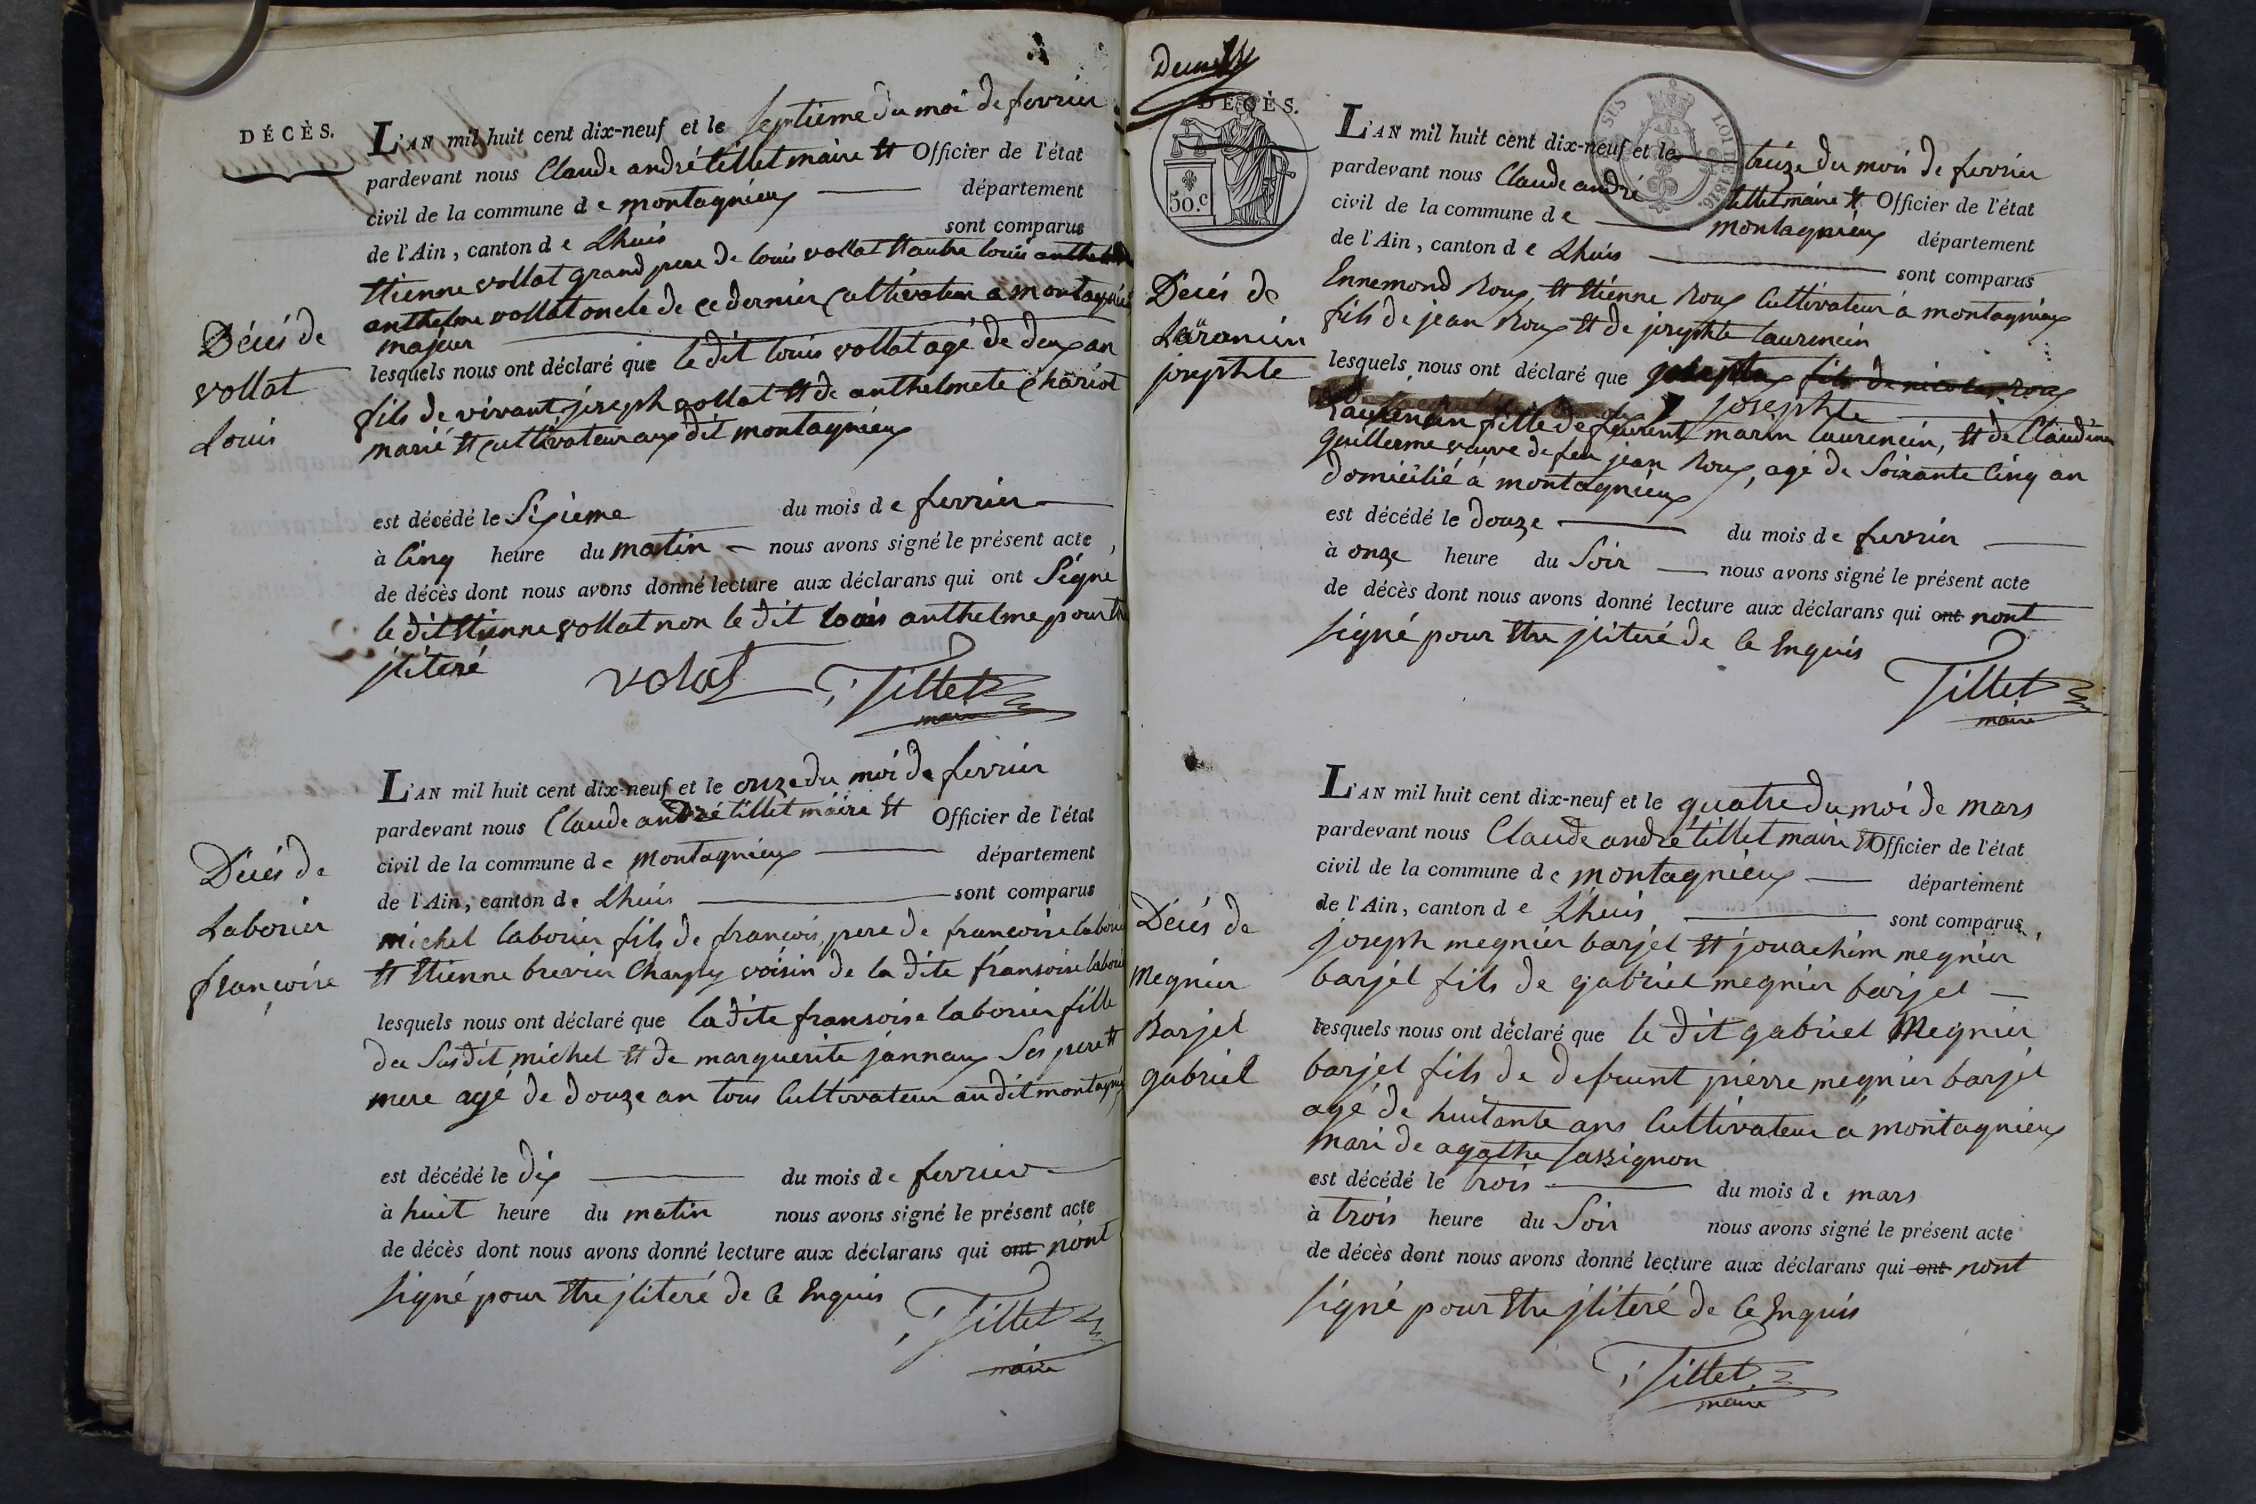 DÉCÈS.
L'AN mil huit cent dix-neuf et le septieme du moi de fevrier
pardevant nous Claude andré tillet maire et Officier de l'état
civil de la commune de montagnieux département
de l'Ain, canton de Lhuis sont comparus
Etienne vollat grand pere de louis vollat et autre louis anthelme
anthelme vollat oncle de ce dernier Cultivateur a montagnieux
majeur
Décés de
vollat
Louis
lesquels nous ont déclaré que le dit louis vollat agé de deux an
fils de vivant joseph vollat et de anthelmete chariot
marié et Cultivateur au dit montagnieux
est décédé le Sixieme du mois de fevrier
à Cinq heure du matin nous avons signé le présent acte
de décès dont nous avons donné lecture aux déclarans qui ont Signe
le dit Etienne vollat non le dit louis anthelme pour
jliteré
volat Tillet
maire
L'AN mil huit cent dix-neuf et le onze du moi de fevrier
pardevant nous Claude andré tillet maire et Officier de l'état
civil de la commune de montagnieux département
de l'Ain, canton de Lhuis sont comparus
Décés de
Laborier
françoise
michel laborier fils de francois, pere de francoise laborier
et Etienne brevier Charpy voisin de la dite fransoise laborier
lesquels nous ont déclaré que la dite fransoise laborier fille
du Susdit michel et de marguerite jannaux Ses pere et
mere agé de douze an tous Cultivateur au dit montagnieux
est décédé le dix du mois de fevrier
à huit heure du matin nous avons signé le présent acte
de décès dont nous avons donné lecture aux déclarans qui ont nont
signé pour Etre jliteré de Ce Enquis
Tillet
maire
DÉCÈS.
50.c
L'AN mil huit cent dix-neuf et le treize du mois de fevrier
pardevant nous Claude andré tillet maire et Officier de l'état
civil de la commune de montagnieux département
de l'Ain, canton de Lhuis sont comparus
LOI DE 1816.
Décés de
Laranein
josephte
Ennemond Roux, et Etiénne Roux Cultivateur a montagnieux
fils de jean Roux et de josephte laurencin
lesquels nous ont déclaré que fils de nicolas roux
josephte
Laurencin fille de marin laurencin, et de Claudine
guillerme veuve de feu jean Roux, agé de Soixante Cinq an
domicilié a montagnieux
est décédé le douze du mois de fevrier
à onze heure du Soir nous avons signé le présent acte
de décès dont nous avons donné lecture aux déclarans qui ont nont
signé pour Etre jliteré de Ce Enquis
Tillet
maire
L'AN mil huit cent dix-neuf et le quatre du moi de mars
pardevant nous Claude andré tillet maire et Officier de l'état
civil de la commune de montagnieux département
de l'Ain, canton de Lhuis sont comparus
Décés de
Megnier
Barjel
gabriel
joseph megnier barjel et jouachim megnier
barjel fils de gabriel megnier barjel
lesquels nous ont déclaré que le dit gabriel Megnier
barjel fils de defeunt pierre megnier barjel
agé de huitante ans Cultivateur a montagnieux
mari de agathe Sassignon
est décédé le trois du mois de mars
à trois heure du Soir nous avons signé le présent acte
de décès dont nous avons donné lecture aux déclarans qui ont nont
signé pour Etre jliteré de Ce Enquis
Tillet
maire